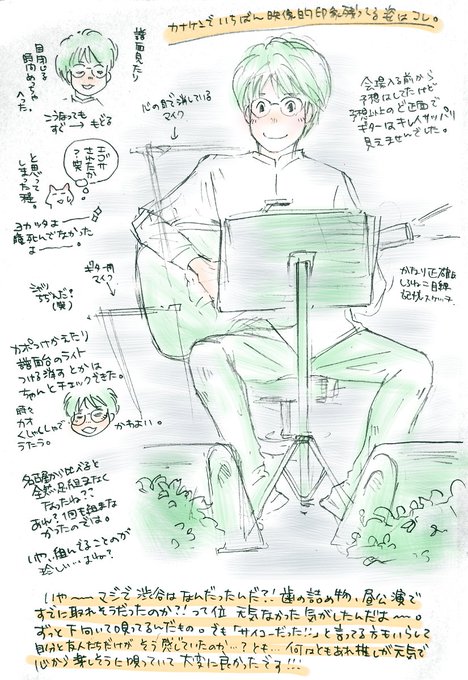 カナケンでいちばん映像的印象残ってる姿はコレ。
譜面見たり
目閉じる
瞬間めっちゃ
へった。
こうなっても
すぐ→もどる
心の目で消している
マイク
会場入る前から
予想はしてたけど
予想以上のど正面で
ギターはキレイサッパリ
見えませんでした。
エゴサ
されたか
?笑
と思って
しまった程。
ヨカッタよー
瞳死んでなかった
よー。
ギター用
マイク
かなり正確な
しろねこ目線
記憶スケッチ
カポつけかえたり
譜面台のライト
つける消すとかは
ちゃんとチェックできた。
時々
カオ
くしゃくしゃで
うたう。
かわよい。
名古屋から比べると
全然足組まなく
なったね??
あん?1回も組まな
かったのでは。
いや、組んでることのが
珍しい…
いや〜マジで渋谷はなんだったんだ?!歯の詰め物、昼公演で
すでに取れそうだったのか?!って位 元気なかった気がしたんだよー。
ずっと下向いて唄ってるんだもの。でも「サイコーだった!」と言ってる方もいらして
自分と友人たちだけが そう感じていたのか…?とも…何はともあれ推しが元気で
心から楽しそうに唄っていて大変に良かったです!!!